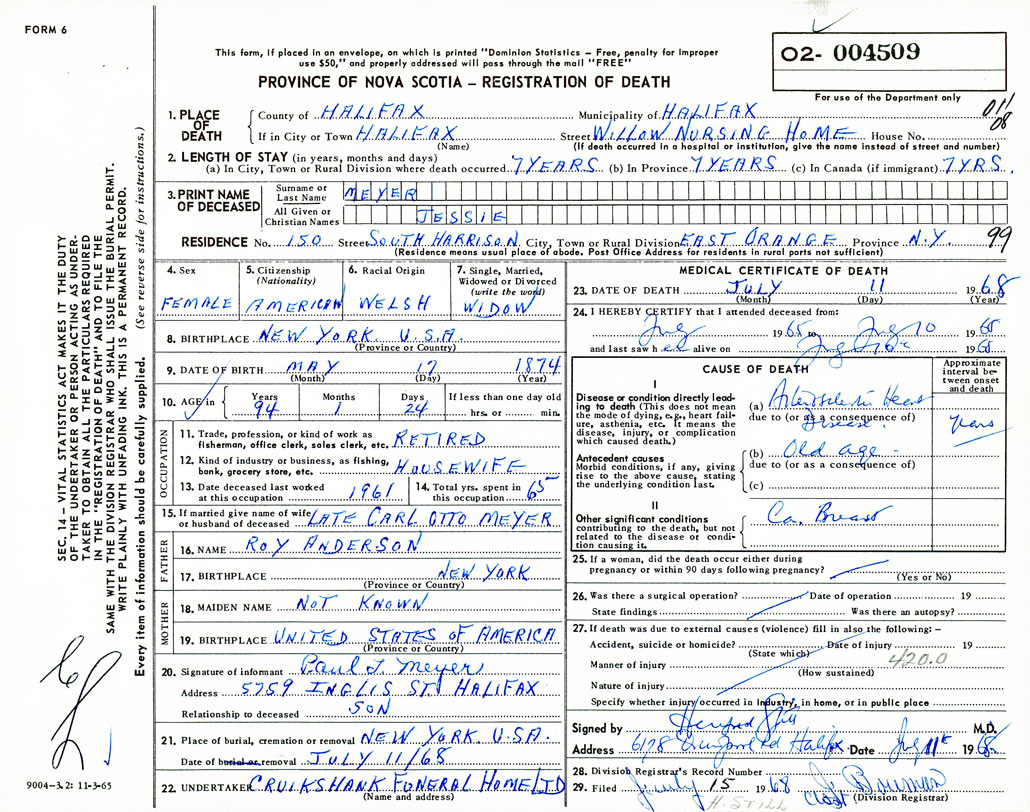 FORM 6
This form, if placed in an envelope, on which is printed "Dominion Statistics – Free, penalty for improper
use $50," and properly addressed will pass through the mail "FREE"
PROVINCE OF NOVA SCOTIA – REGISTRATION OF DEATH
02- 004509
For use of the Department only
011
08
1. PLACE OF DEATH
County of HALIFAX Municipality of HALIFAX
If in City or Town HALIFAX Street WILLOW NURSING HOME House No.
(Name) (If death occurred in a hospital or institution, give the name instead of street and number)
2. LENGTH OF STAY (in years, months and days)
(a) In City, Town or Rural Division where death occurred 7 YEARS (b) In Province 7 YEARS (c) In Canada (if immigrant) 7 YRS.
3. PRINT NAME OF DECEASED
Surname or Last Name MEYER
All Given or Christian Names JESSIE
RESIDENCE No. 150 Street SOUTH HARRISON City, Town or Rural Division EAST ORANGE Province N.Y. 99
(Residence means usual place of abode. Post Office Address for residents in rural parts not sufficient)
4. Sex
FEMALE
5. Citizenship (Nationality)
AMERICAN
6. Racial Origin
WELSH
7. Single, Married, Widowed or Divorced (write the word)
WIDOW
8. BIRTHPLACE NEW YORK U.S.A.
(Province or Country)
9. DATE OF BIRTH MAY 17 1874
(Month) (Day) (Year)
10. AGE in Years Months Days If less than one day old
94 1 24 hrs. or min.
OCCUPATION
11. Trade, profession, or kind of work as
fisherman, office clerk, sales clerk, etc. RETIRED
12. Kind of industry or business, as fishing,
bank, grocery store, etc. HOUSEWIFE
13. Date deceased last worked
at this occupation 1961
14. Total yrs. spent in
this occupation 65
15. If married give name of wife
or husband of deceased LATE CARL OTTO MEYER
FATHER
16. NAME ROY ANDERSON
17. BIRTHPLACE NEW YORK
(Province or Country)
MOTHER
18. MAIDEN NAME NOT KNOWN
19. BIRTHPLACE UNITED STATES OF AMERICA
(Province or Country)
20. Signature of informant Paul J. Meyer
Address 5759 INGLIS ST. HALIFAX
Relationship to deceased SON
21. Place of burial, cremation or removal NEW YORK. U.S.A.
Date of burial or removal JULY 11/68
22. UNDERTAKER CRUIKSHANK FUNERAL HOME LTD
(Name and address)
MEDICAL CERTIFICATE OF DEATH
23. DATE OF DEATH JULY 11 1968
(Month) (Day) (Year)
24. I HEREBY CERTIFY that I attended deceased from:
July 1965 to July 10 1968
and last saw her alive on July 10 1968
CAUSE OF DEATH
Approximate interval between onset and death
I
Disease or condition directly leading to death (This does not mean the mode of dying, e.g., heart failure, asthenia, etc. It means the disease, injury, or complication which caused death.)
(a) Arteriosclerotic Heart
due to (or as a consequence of)
Disease
years
Antecedent causes
Morbid conditions, if any, giving rise to the above cause, stating the underlying condition last.
(b) Old age -
due to (or as a consequence of)
(c)
II
Other significant conditions contributing to the death, but not related to the disease or condition causing it.
Ca. Breast
25. If a woman, did the death occur either during
pregnancy or within 90 days following pregnancy?
(Yes or No)
26. Was there a surgical operation? Date of operation 19
State findings Was there an autopsy?
27. If death was due to external causes (violence) fill in also the following: –
Accident, suicide or homicide? Date of injury 19
(State which)
420.0
Manner of injury
(How sustained)
Nature of injury
Specify whether injury occurred in industry, in home, or in public place
Signed by Still M.D.
Address 6178 Rd Halifax Date July 11 1968
28. Division Registrar's Record Number
29. Filed July 15 1968
(Division Registrar)
H. STILL
SEC. 14 – VITAL STATISTICS ACT MAKES IT THE DUTY
OF THE UNDERTAKER OR PERSON ACTING AS UNDER-
TAKER TO OBTAIN ALL THE PARTICULARS REQUIRED
IN THE "REGISTRATION OF DEATH" AND TO FILE THE
SAME WITH THE DIVISION REGISTRAR WHO SHALL ISSUE THE BURIAL PERMIT.
WRITE PLAINLY WITH UNFADING INK. THIS IS A PERMANENT RECORD.
Every item of information should be carefully supplied. (See reverse side for instructions.)
9004-3.2: 11-3-65